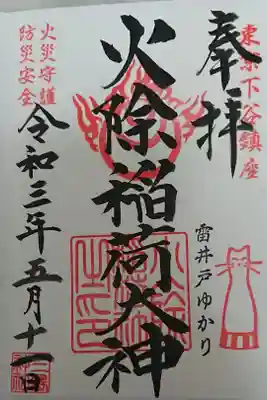 東京下谷鎮座
奉拝
雷井戸ゆかり
火除稲荷大神
火災守護
防災安全
令和三年五月十一日